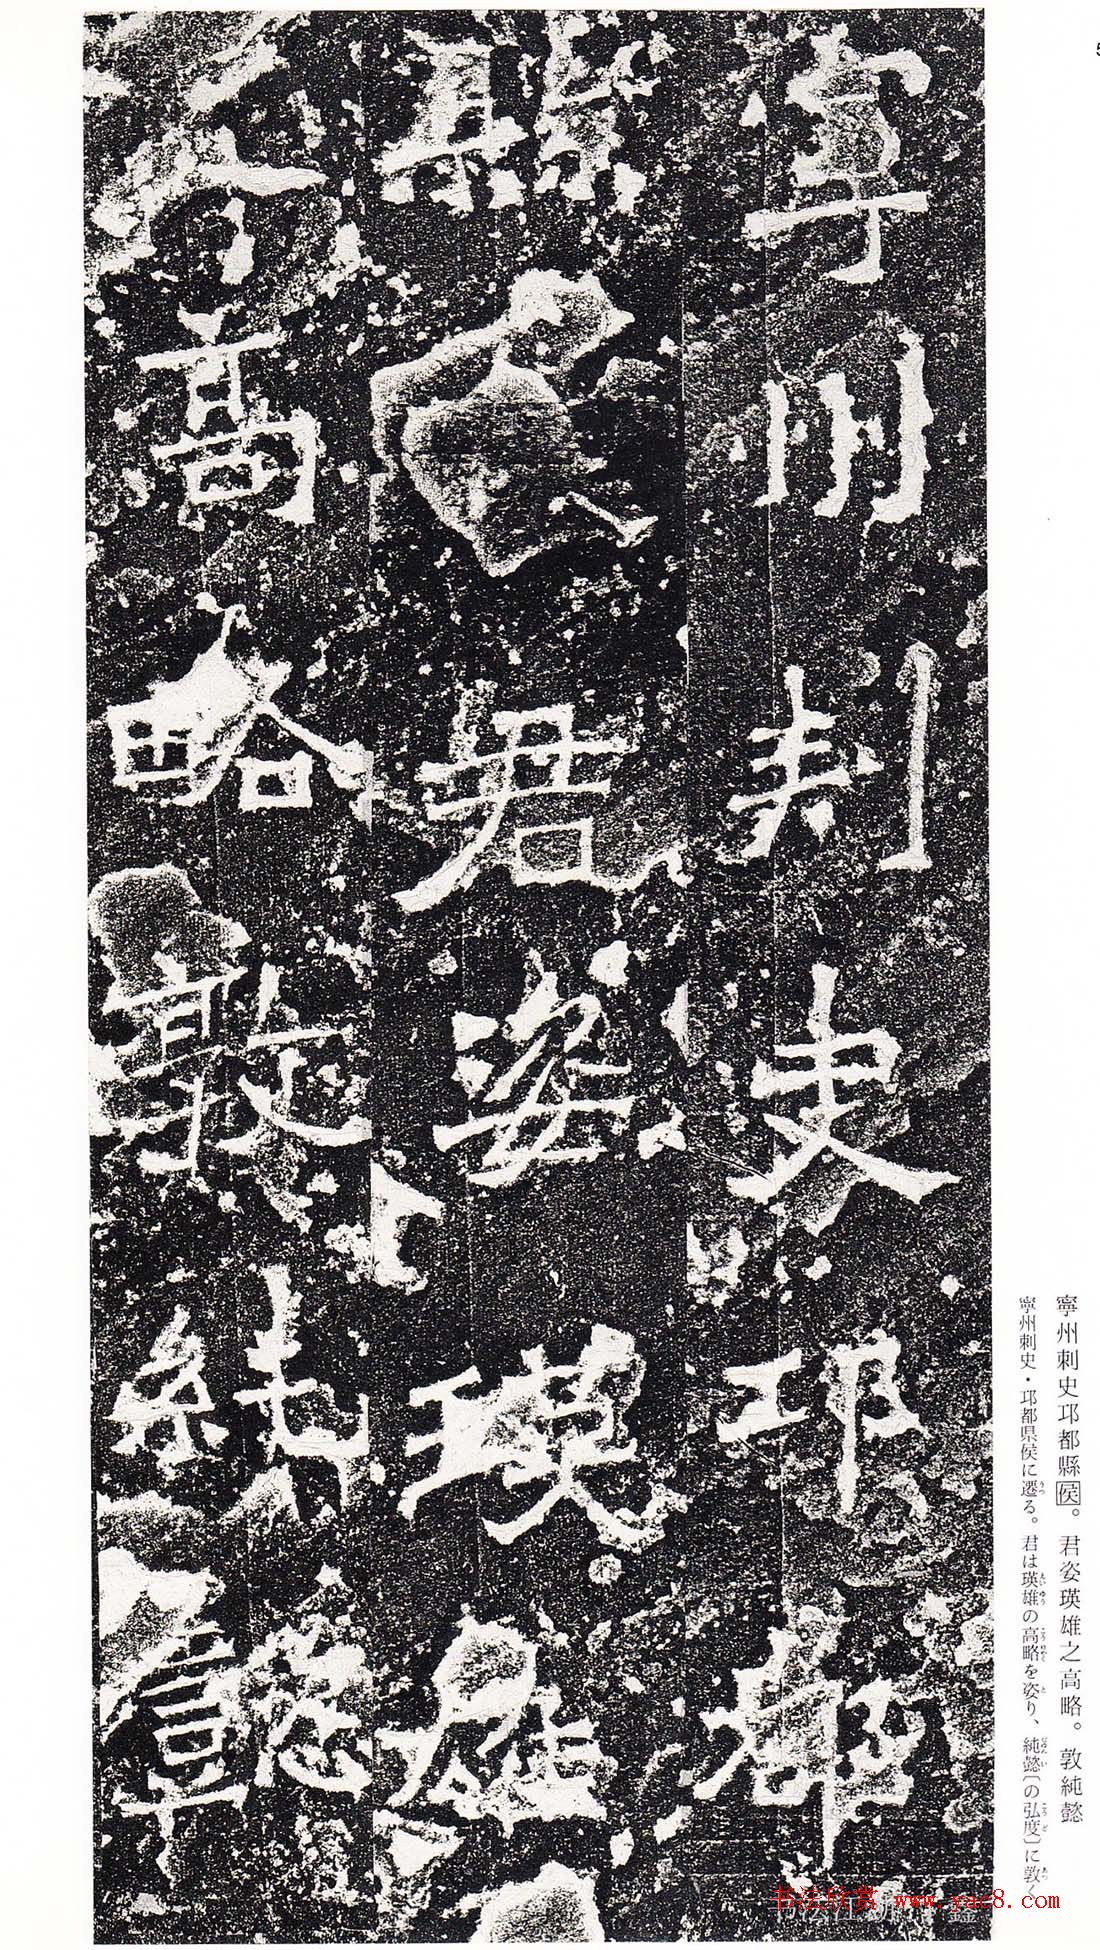 寧州刺史邛都
縣侯君姿瑛雄
之高略敦純懿
寧州刺史邛都縣侯。君姿瑛雄之高略。敦純懿
寧州刺史・邛都県侯に遷る。君は瑛雄の高略を姿り、純懿〔の弘度〕に敦く
5
书法欣赏 www.yac8.com